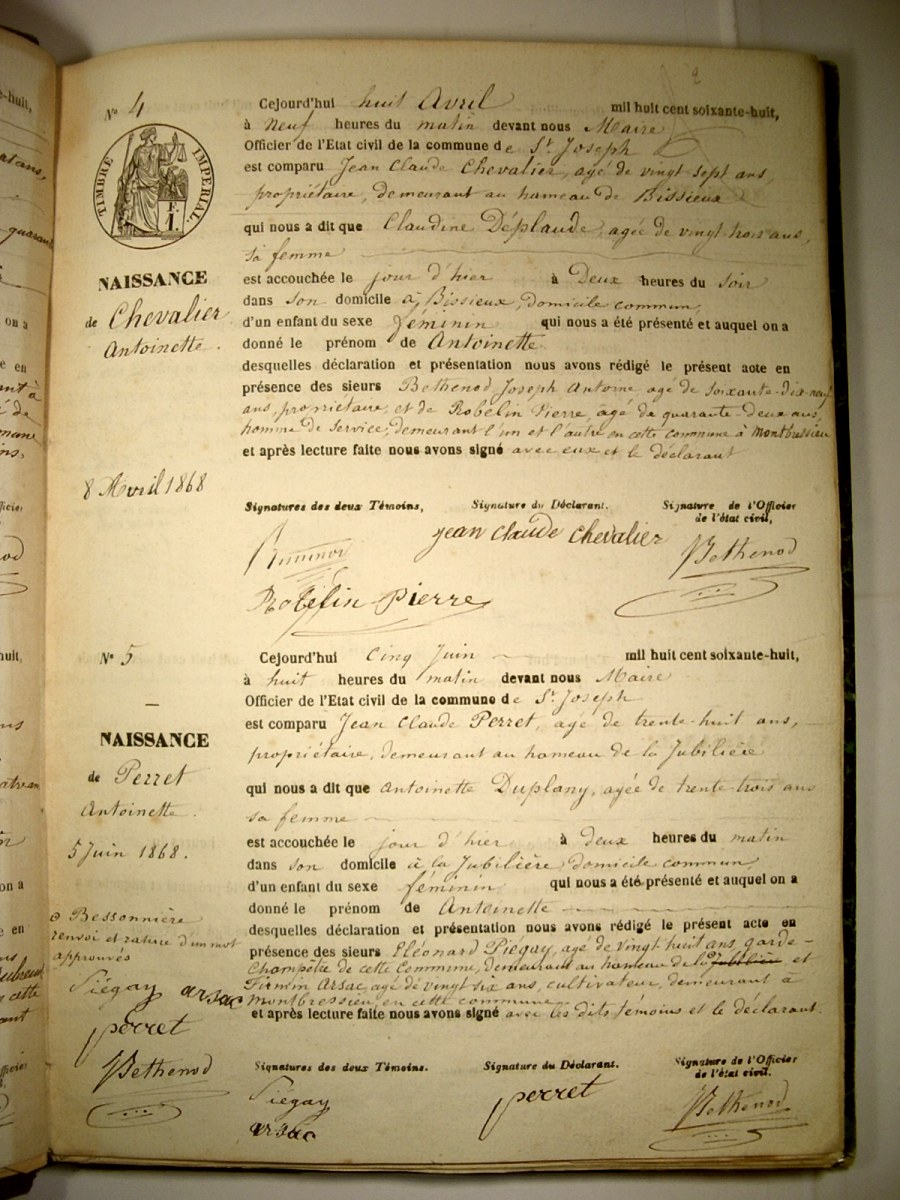 2
N° 4
TIMBRE IMPERIAL.
F.
1.
NAISSANCE
de Chevalier
Antoinette.
8 Avril 1868
Cejourd'hui huit Avril mil huit cent soixante-huit,
à neuf heures du matin devant nous Maire
Officier de l'Etat civil de la commune de St. Joseph
est comparu Jean Claude Chevalier, agé de vingt sept ans,
propriétaire, demeurant au hameau de Bissieux
qui nous a dit que Claudine Déplaude, agée de vingt trois ans,
sa femme
est accouchée le jour d'hier à Deux heures du soir
dans son domicile à Bissieux, domicile commun
d'un enfant du sexe féminin qui nous a été présenté et auquel on a
donné le prénom de Antoinette
desquelles déclaration et présentation nous avons rédigé le présent acte en
présence des sieurs Bethenod Joseph Antoine agé de soixante-dix-neuf
ans, propriétaire, et de Robelin Pierre, agé de quarante-deux ans,
homme de service, demeurant l'un et l'autre en cette commune à Montbressieu
et après lecture faite nous avons signé avec eux et le déclarant
Signatures des deux Témoins, Signature du Déclarant. Signature de l'Officier
de l'état civil,
jean claude chevalier
Bethenod
Robelin pierre
N° 5
NAISSANCE
de Perret
Antoinette.
5 Juin 1868.
Bessonnière
renvoi et rature d'un mot
approuvés
Piégay arsac
perret
Bethenod
Cejourd'hui Cinq Juin mil huit cent soixante-huit,
à huit heures du matin devant nous Maire
Officier de l'Etat civil de la commune de St. Joseph
est comparu Jean Claude Perret, agé de trente-huit ans,
propriétaire, demeurant au hameau de la Jubilière
qui nous a dit que Antoinette Duplany, agée de trente-trois ans
sa femme
est accouchée le jour d'hier à deux heures du matin
dans son domicile à la Jubilière domicile commun
d'un enfant du sexe féminin qui nous a été présenté et auquel on a
donné le prénom de Antoinette
desquelles déclaration et présentation nous avons rédigé le présent acte en
présence des sieurs Eléonard Piégay, agé de vingt huit ans, garde-
Champêtre de cette Commune, demeurant au hameau de la Jubilière et
Firmin Arsac, agé de vingt six ans, cultivateur, demeurant à
Montbressieu, en cette commune
et après lecture faite nous avons signé avec les dits témoins et le déclarant.
Signatures des deux Témoins. Signature du Déclarant. Signature de l'Officier
de l'état civil.
Piégay
arsac
perret
Bethenod